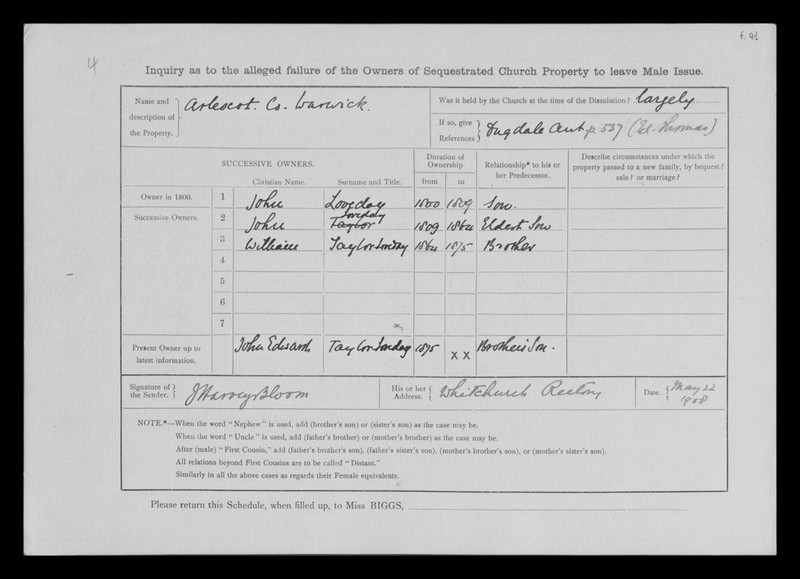 f. 41
4
Inquiry as to the alleged failure of the Owners of Sequestrated Church Property to leave Male Issue.
Name and description of the Property. } Arlescot. Co. Warwick.
Was it held by the Church at the time of the Dissolution? largely
If so, give References } Dugdale Ant. p. 537 (Ed. Thomas)
SUCCESSIVE OWNERS.
Christian Name. Surname and Title.
Duration of Ownership
from to
Relationship* to his or her Predecessor.
Describe circumstances under which the property passed to a new family, by bequest? sale? or marriage?
Owner in 1800. 1 John Loveday 1800 1809 Son.
Successive Owners. 2 John Taylor Loveday 1809 1864 Eldest Son
3 William Taylor Loveday 1864 1875 Brother
4
5
6
7
Present Owner up to latest information. John Edward Taylor Loveday 1875 x x Brother's Son.
Signature of the Sender. } J Harvey Bloom
His or her Address. { Whitchurch Rectory
Date. { May 22 1908
NOTE.*—When the word "Nephew" is used, add (brother's son) or (sister's son) as the case may be.
When the word "Uncle" is used, add (father's brother) or (mother's brother) as the case may be.
After (male) "First Cousin," add (father's brother's son), (father's sister's son), (mother's brother's son), or (mother's sister's son).
All relations beyond First Cousins are to be called "Distant."
Similarly in all the above cases as regards their Female equivalents.
Please return this Schedule, when filled up, to Miss BIGGS,